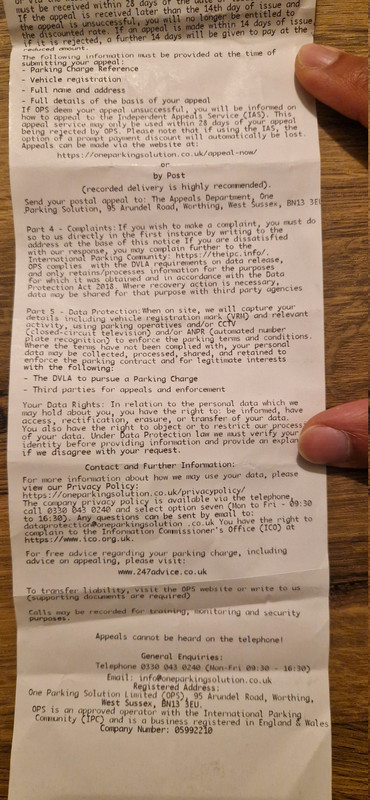 must be received within 28 days of the date of
If the appeal is received later than the 14th day of issue and
the appeal is unsuccessful, you will no longer be entitled to
the discounted rate. If an appeal is made within 14 days of issue
if it is rejected, a further 14 days will be given to pay at the
reduced amount.
The following information must be provided at the time of
submitting your appeal:
- Parking Charge Reference
- Vehicle registration
- Full name and address
- Full details of the basis of your appeal
If OPS deem your appeal unsuccessful, you will be informed on
how to appeal to the Independent Appeals Service (IAS). This
appeal service may only be used within 28 days of your appeal
being rejected by OPS. Please note that if using the IAS, the
option of a prompt payment discount will automatically be lost.
Appeals can be made via the website at:
https://oneparkingsolution.co.uk/appeal-now/
or
by Post
(recorded delivery is highly recommended).
Send your postal appeal to: The Appeals Department, One
Parking Solution, 95 Arundel Road, Worthing, West Sussex, BN13 3E
Part 4 - Complaints: If you wish to make a complaint, you must do
so to us directly in the first instance by writing to the
address at the base of this notice If you are dissatisfied
with our response, you may complain further to the
International Parking Community: https://theipc.info/.
OPS complies with the DVLA requirements on data release,
and only retains/processes information for the purposes
for which it was obtained and in accordance with the Data
Protection Act 2018. Where recovery action is necessary,
data may be shared for that purpose with third party agencies
Part 5 - Data Protection: When on site, we will capture your
details including vehicle registration mark (VRH) and relevant
activity, using parking operatives and/or CCTV
(closed-circuit television) and/or ANPR (automated number
plate recognition) to enforce the parking terms and conditions.
Where the terms have not been complied with, your personal
data may be collected, processed, shared, and retained to
enforce the parking contract and for legitimate interests
with the following:
- The DVLA to pursue a Parking Charge
- Third parties for appeals and enforcement
Your Data Rights: In relation to the personal data which we
may hold about you, you have the right to: be informed, have
access, rectification, erasure, or transfer of your data.
You also have the right to object to or restrict our process
of your data. Under Data Protection law we must verify your
identity before providing information and provide an explan
if we disagree with your request.
Contact and Further Information:
For more information about how we may use your data, please
view our Privacy Policy:
https://oneparkingsolution.co.uk/privacypolicy/
The company privacy policy is available via the telephone,
call 0330 043 0240 and select option seven (Mon to Fri - 09:30
to 16:30). Any questions can be sent by email to:
dataprotection@oneparkingsolution .co.uk You have the right to
complain to the Information Commissioner's Office (ICO) at
https://www.ico.org.uk.
For free advice regarding your parking charge, including
advice on appealing, please visit:
www.247advice.co.uk
To transfer liability, visit the OPS website or write to us
(supporting documents are required)
Calls may be recorded for training, monitoring and security
purposes.
Appeals cannot be heard on the telephone!
General Enquiries:
Telephone 0330 043 0240 (Mon-Fri 09:30 - 16:30)
Email: info@oneparkingsolution.co.uk
Registered Address:
One Parking Solution Limited (OPS), 95 Arundel Road, Worthing,
West Sussex, BN13 3EU.
OPS is an approved operator with the International Parking
Community (IPC) and is a business registered in England & Wales
Company Number: 05992210